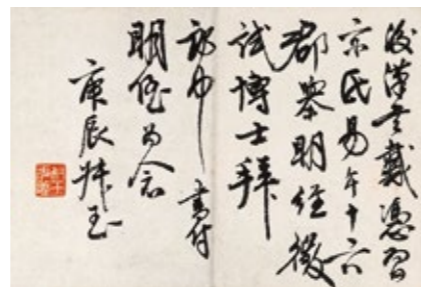 後漢書戴憑習
京氏易年十六
郡舉明經徵
試博士拜
郎中 書付
明為念
庚辰玉